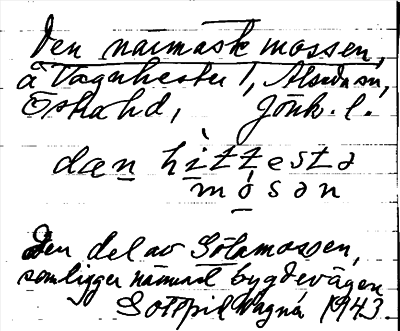 Den närmaste mossen,
å Vagnhester 1, Alseda sn,
Östra hd, Jönk. l.
dan hìttesta
mósan
Den del av Götamossen,
som ligger närmast bygdevägen
Gottfrid Wagnér 1943